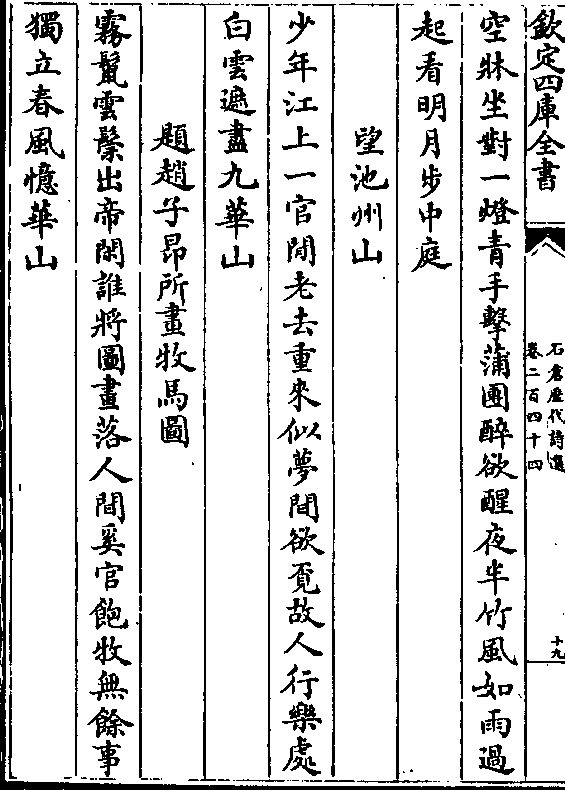 欽定四庫全書
石倉歷代詩選
卷二百四十四
十九
空牀坐對一燈青手擊蒲團醉欲醒夜半竹風如雨過
起看明月步中庭
望池州山
少年江上一官閒老去重來似夢間欲覓故人行樂處
白雲遮盡九華山
題趙子昂所畫牧馬圖
霧鬛雲鬃出帝閑誰將圖畫落人間奚官飽牧無餘事
獨立春風憶華山